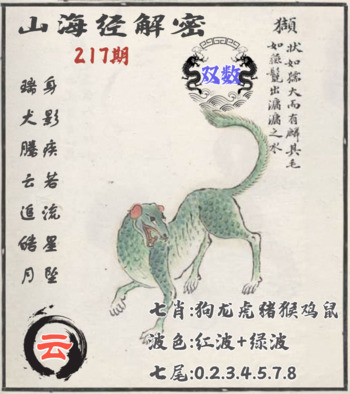 山海经解密
217期
双数
獺
状如獳犬而有鳞其毛
如彘鬣出滽滽之水
瑞犬腾云追皓月
身影疾若流星坠
云
七肖:狗龙虎猪猴鸡鼠
波色:红波+绿波
七尾:0.2.3.4.5.7.8